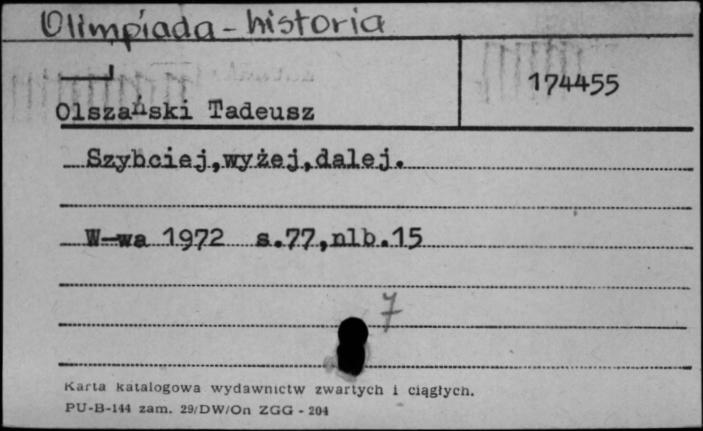 Olimpiada - historia
174455
Olszański Tadeusz
Szybciej,wyżej,dalej.
W-wa 1972 s.77,nlb.15
7
Karta katalogowa wydawnictw zwartych i ciągłych.
PU-B-144 zam. 29/DW/On ZGG - 204